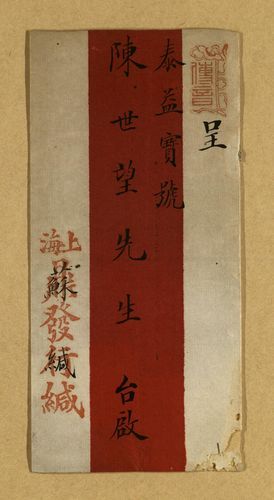 呈
泰益寶號
陳世望先生 台啟
上海
發 緘
蘇 緘